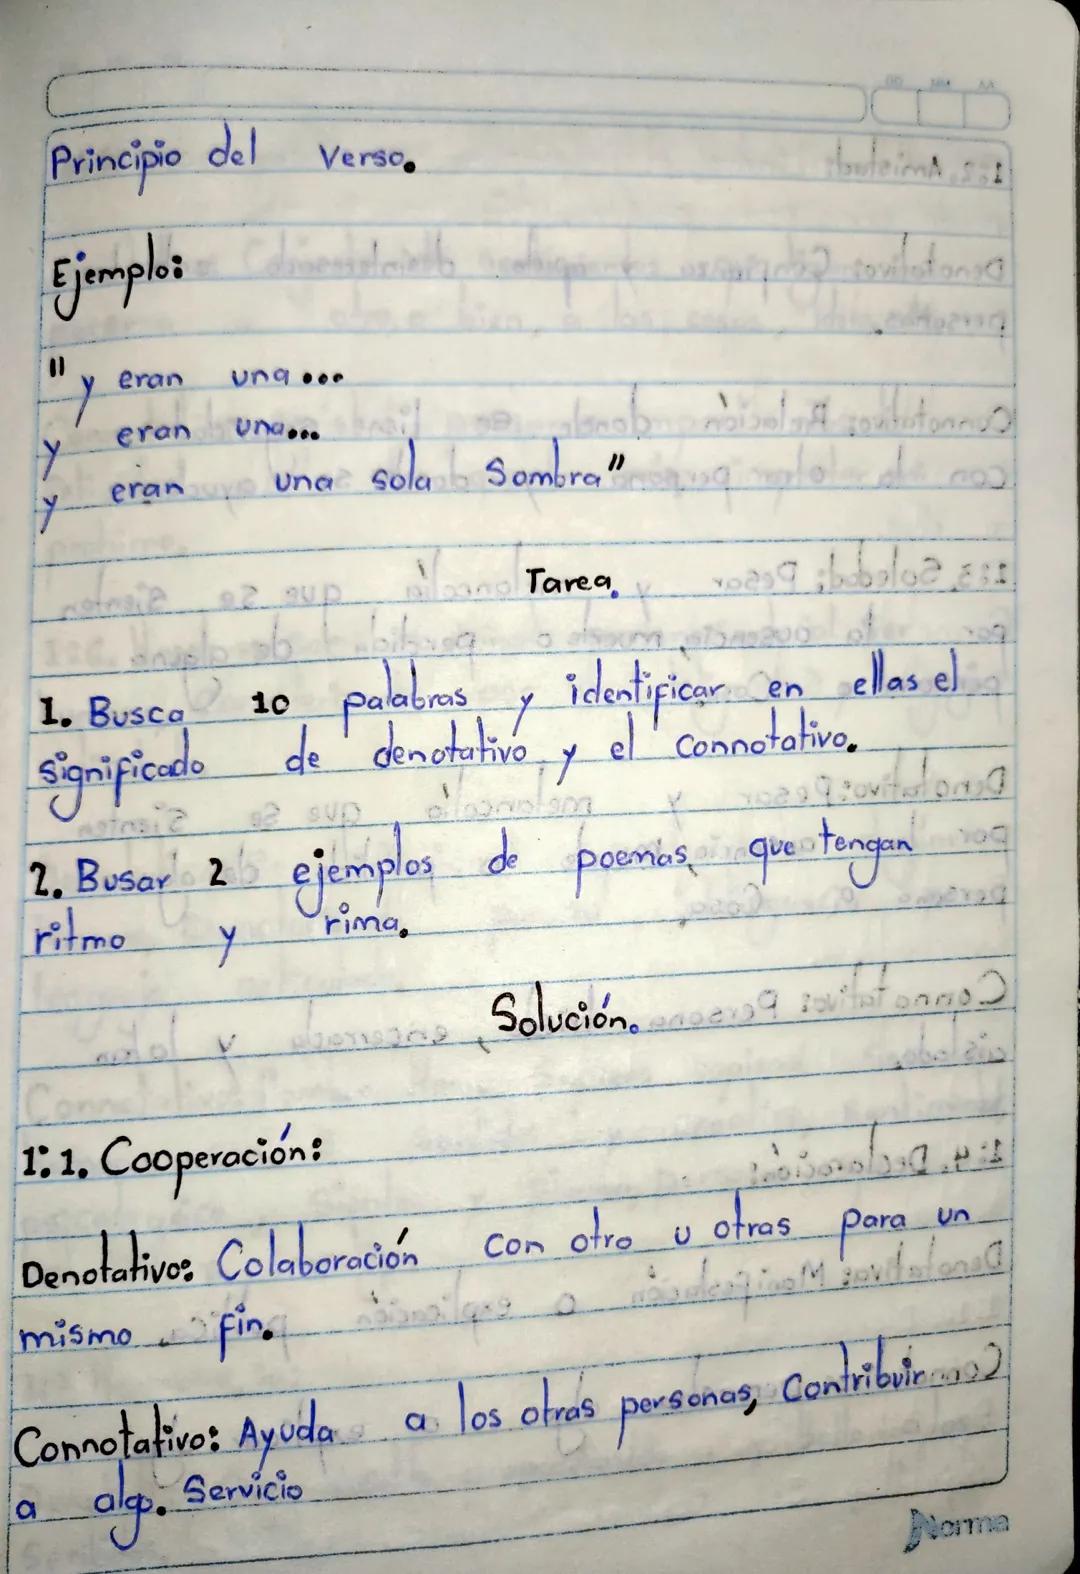 Principio del Verso.
Ejemplo:
"y eran una...
y eran una...
y eran una sola Sombra"
Tarea.
1. Busca 10 palabras y identificar en ellas el
significado de denotativo y el connotativo.
2. Busar 2 ejemplos de poemas que tengan
ritmo y rima.
Solución.
1:1. Cooperación:
Denotativo: Colaboración con otro u otras para un
mismo fin.
Connotativo: Ayuda a los otras personas, Contribuir
a algo. Servicio
Norma